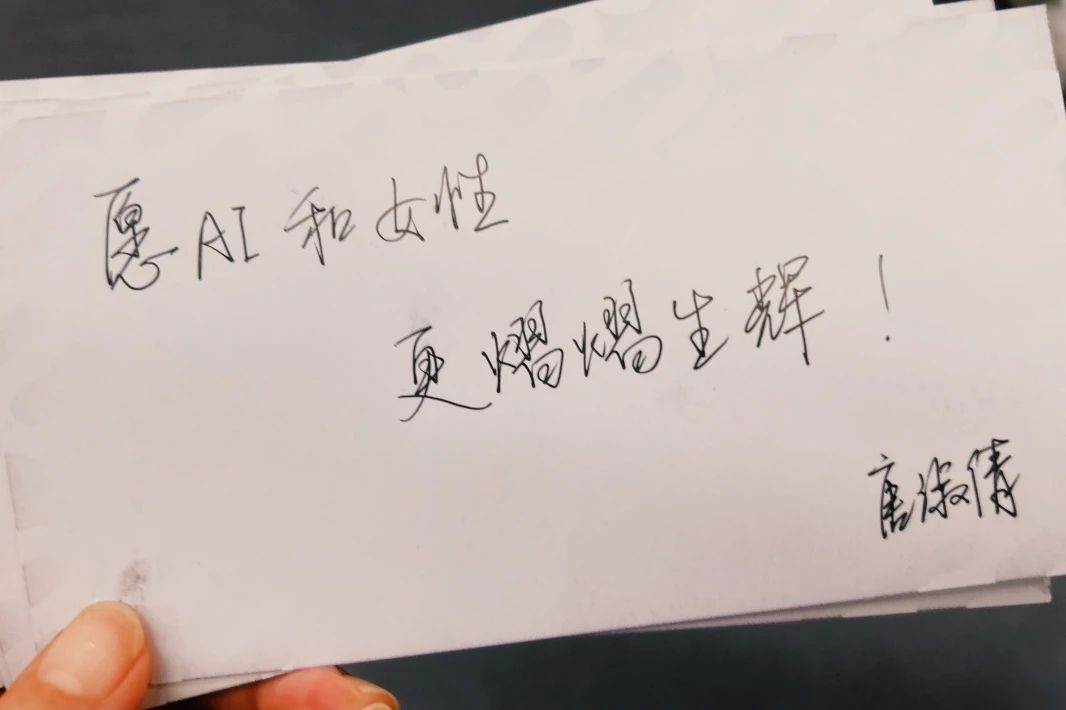 愿AI和女性
更熠熠生辉！
唐淑倩